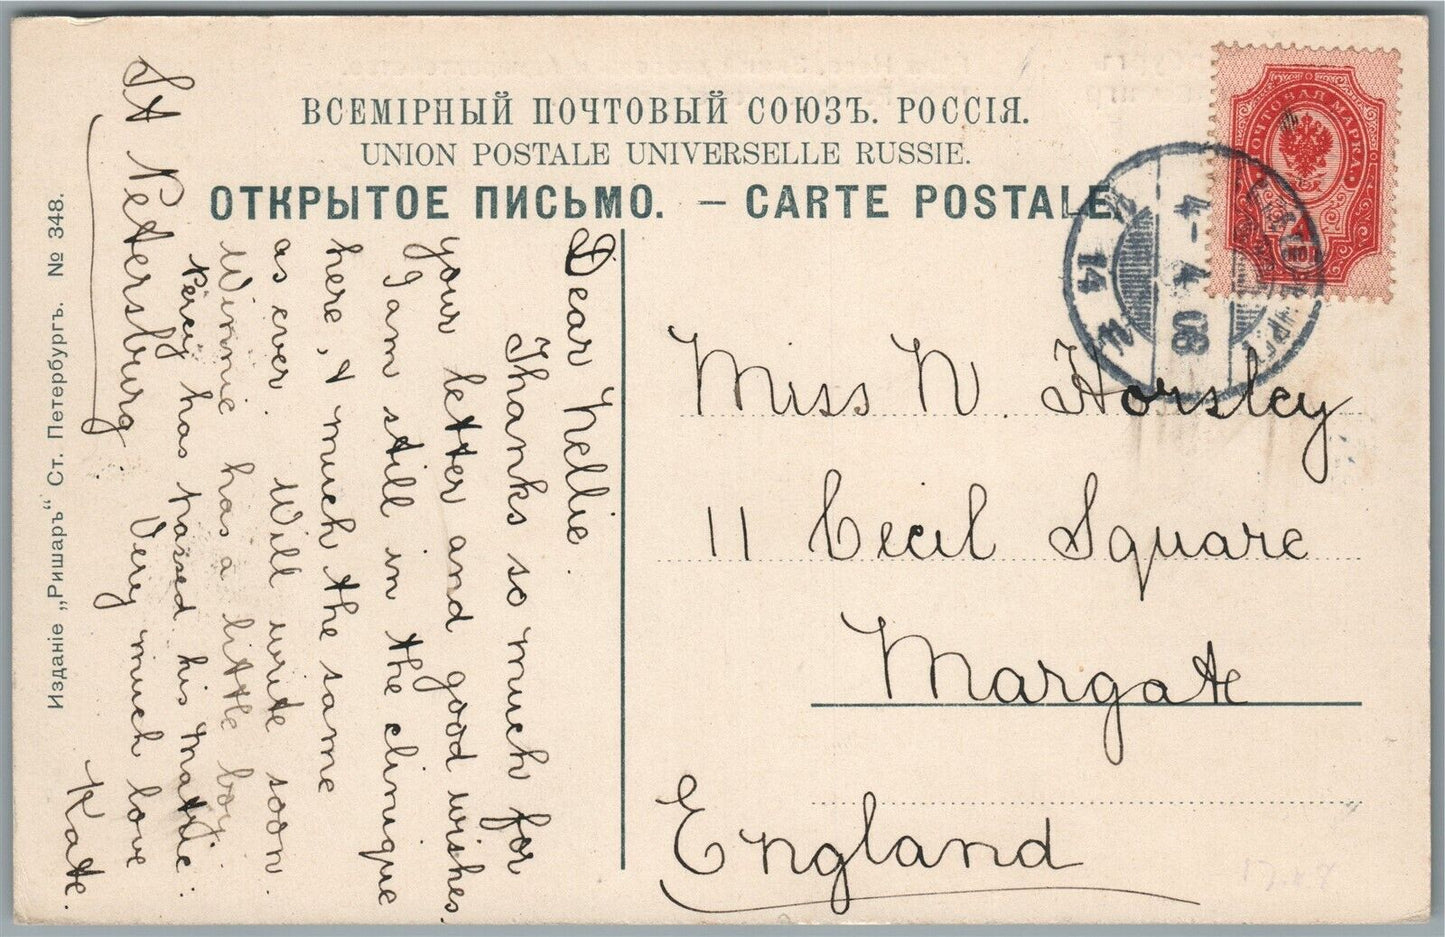 ВСЕМІРНЫЙ ПОЧТОВЫЙ СОЮЗЪ. РОССІЯ.
UNION POSTALE UNIVERSELLE RUSSIE.
ОТКРЫТОЕ ПИСЬМО. — CARTE POSTALE.
ПОЧТОВАЯ МАРКА
4-4 08
14
Miss N. Horsley
11 Cecil Square
Margate
England
St Petersburg.
Dear Nellie.
Thanks so much for
your letter and good wishes.
I am still in the clinique
here, & much the same
as ever. Will write soon.
Winnie has a little boy.
Percy has passed his matric:
Very much love
Kate.
Изданіе „Ришаръ“ Ст. Петербургъ. № 348.